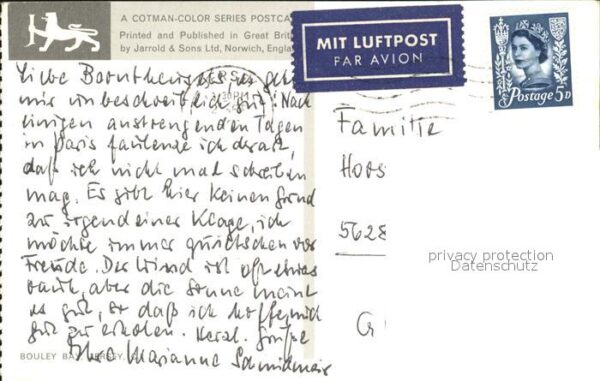 A COTMAN-COLOR SERIES POSTCA
Printed and Published in Great Brit
by Jarrold & Sons Ltd, Norwich, Engla
MIT LUFTPOST
PAR AVION
Postage 5D
Liebe es geht
mir unbeschreiblich gut! Nach
einigen anstrengenden Tagen
in Paris faulenze ich derart,
daß ich nicht mal schreiben
mag. Es gibt hier keinen Grund
zu irgendeiner Klage, ich
möchte immer quietschen vor
Freude. Der Wind ist oft etwas
rauh, aber die Sonne meint
es gut, so daß ich hoffe, mich
gut zu erholen. Herzl. Grüße
Ihre Marianne
BOULEY BAY, JERSEY
Familie
Hoos
5628
G
privacy protection
Datenschutz